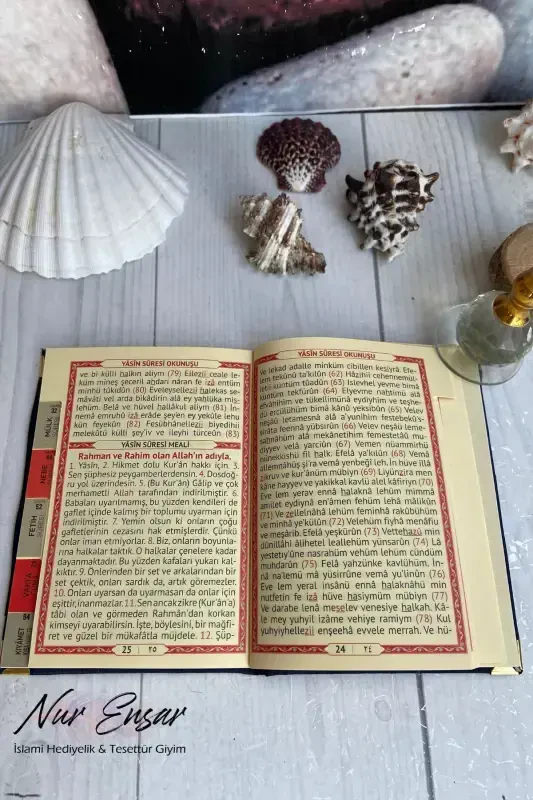 YÂSÎN SÛRESİ OKUNUŞU
ve lekad adalle minküm cibillen kesiyrâ. Efe-
lem tekûnû ta'kılûn (62) Hâzihiî cehennemül-
letiî küntüm tûadûn (63) Islevhel yevme bimâ
küntüm tekfürûn (64) Elyevme nahtimü alâ
efvâhihim ve tükellimünâ eydiyhim ve teşhe-
dü ercülühüm bimâ kânû yeksibûn (65) Velev
neşâü letamesnâ alâ a'yunihim festebekû's-
sırâta feennâ yübsırûn (66) Velev neşâü leme-
sahnâhüm alâ mekânetihim femestetâû mu-
dıyyev velâ yarciûn (67) Vemen nüammirhü
nünekkishü fil halk. Efelâ ya'kılûn (68) Vemâ
allemnâhüş şi'ra vemâ yenbeğî leh. İn hüve illâ
zikruv ve kur'ânüm mübiyn (69) Liyünzira men
kâne hayyev ve yakikkal kavlü alel kâfiriyn (70)
Eve lem yerav ennâ halaknâ lehüm mimmâ
amilet eydiynâ en'âmen fehüm lehâ mâlikûn
(71) Ve zellelnâhâ lehüm feminhâ rakûbühüm
ve minhâ ye'külûn (72) Velehüm fiyhâ menâfiu
ve meşârib. Efelâ yeşkürûn (73) Vettehazû min
dûnillâhi âlihetel leallehüm yünsarûn (74) Lâ
yestetıy'ûne nasrahüm vehüm lehüm cündüm
muhdarûn (75) Felâ yahzünke kavlühüm. İn-
nâ na'lemü mâ yüsirrûne vemâ yu'linûn (76)
Eve lem yeral insânü ennâ halaknâhü min
nutfetin fe izâ hüve hasiymüm mübiyn (77)
Ve darabe lenâ meselev venesiye halkah. Kâ-
le mey yuhyil ızâme vehiye ramiym (78) Kul
yuhyiyhellezîî enşeehâ evvele merrah. Ve hü-
24 ٢٤
YÂSÎN SÛRESİ OKUNUŞU
ve bi külli halkın aliym (79) Ellezii ceale le-
küm mineş şeceril ahdari nâran fe izâ entüm
minhü tûkıdûn (80) Eveleysellezii halekas se-
mâvâti vel arda bikâdirin alâ ey yahlüka mis-
lehüm. Belâ ve hüvel hallâkul aliym (81) İn-
nemâ emruhû izâ erâde şey'en ey yekûle lehu
kün feyekûn (82) Fesübhânellezii biyedihii
melekûtü külli şey'iv ve ileyhi türceûn (83)
YÂSÎN SÛRESİ MEALİ
Rahman ve Rahim olan Allah'ın adıyla.
1. Yâsîn, 2. Hikmet dolu Kur'ân hakkı için. 3.
Sen şüphesiz peygamberlerdensin. 4. Dosdoğ-
ru yol üzerindesin. 5. (Bu Kur'ân) Gâlip ve çok
merhametli Allah tarafından indirilmiştir. 6.
Babaları uyarılmamış, bu yüzden kendileri de
gaflet içinde kalmış bir toplumu uyarman için
indirilmiştir. 7. Yemin olsun ki onların çoğu
gafletlerinin cezasını hak etmişlerdir. Çünkü
onlar iman etmiyorlar. 8. Biz, onların boyunla-
rına halkalar taktık. O halkalar çenelere kadar
dayanmaktadır. Bu yüzden kafaları yukarı kal-
kıktır. 9. Önlerinden bir set ve arkalarından bir
set çektik, onları sardık da, artık göremezler.
10. Onları uyarsan da uyarmasan da onlar için
eşittir, inanmazlar. 11. Sen ancak zikre (Kur'ân'a)
tâbi olan ve görmeden Rahmân'dan korkan
kimseyi uyarabilirsin. İşte, böylesini, bir mağfi-
ret ve güzel bir mükâfatla müjdele. 12. Şüp-
25 ٢٥
MÜLK
NEBE
FETİH
52
VAKIA
KIYÂMET
Nur Ensar
İslami Hediyelik & Tesettür Giyim